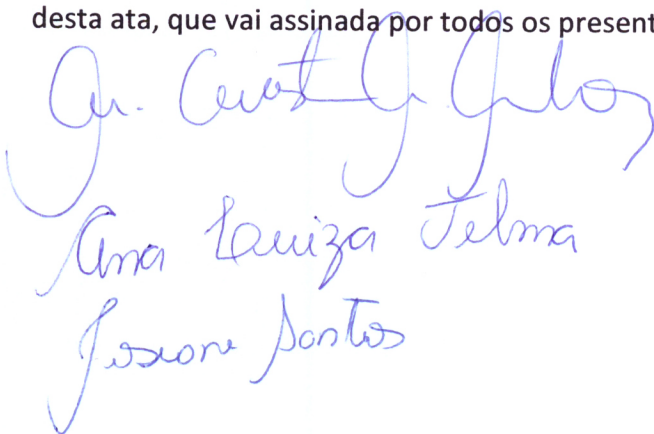 desta ata, que vai assinada por todos os present
Ana Luiza Telma
Josiane Santos